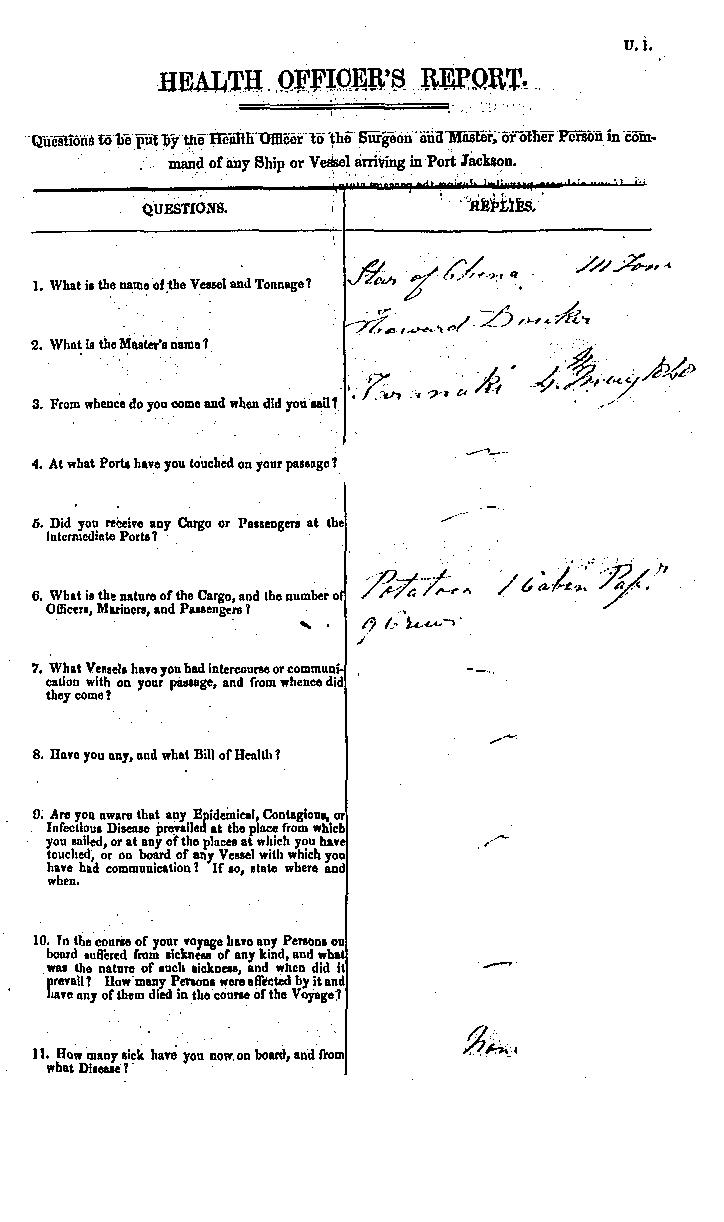 U. 1.
HEALTH OFFICER'S REPORT.
Questions to be put by the Health Officer to the Surgeon and Master, or other Person in com-
mand of any Ship or Vessel arriving in Port Jackson.
QUESTIONS.
REPLIES.
1. What is the name of the Vessel and Tonnage?
Star of China 111 Tons
2. What is the Master's name?
Howard
3. From whence do you come and when did you sail?
Taranaki
4. At what Ports have you touched on your passage?
—
5. Did you receive any Cargo or Passengers at the
Intermediate Ports?
—
6. What is the nature of the Cargo, and the number of
Officers, Mariners, and Passengers?
Potatoes 1 Cabin Passr
9 Crew
7. What Vessels have you had intercourse or communi-
cation with on your passage, and from whence did
they come?
—
8. Have you any, and what Bill of Health?
—
9. Are you aware that any Epidemical, Contagious, or
Infectious Disease prevailed at the place from which
you sailed, or at any of the places at which you have
touched, or on board of any Vessel with which you
have had communication? If so, state where and
when.
—
10. In the course of your voyage have any Persons on
board suffered from sickness of any kind, and what
was the nature of such sickness, and when did it
prevail? How many Persons were affected by it and
have any of them died in the course of the Voyage?
—
11. How many sick have you now on board, and from
what Disease?
None